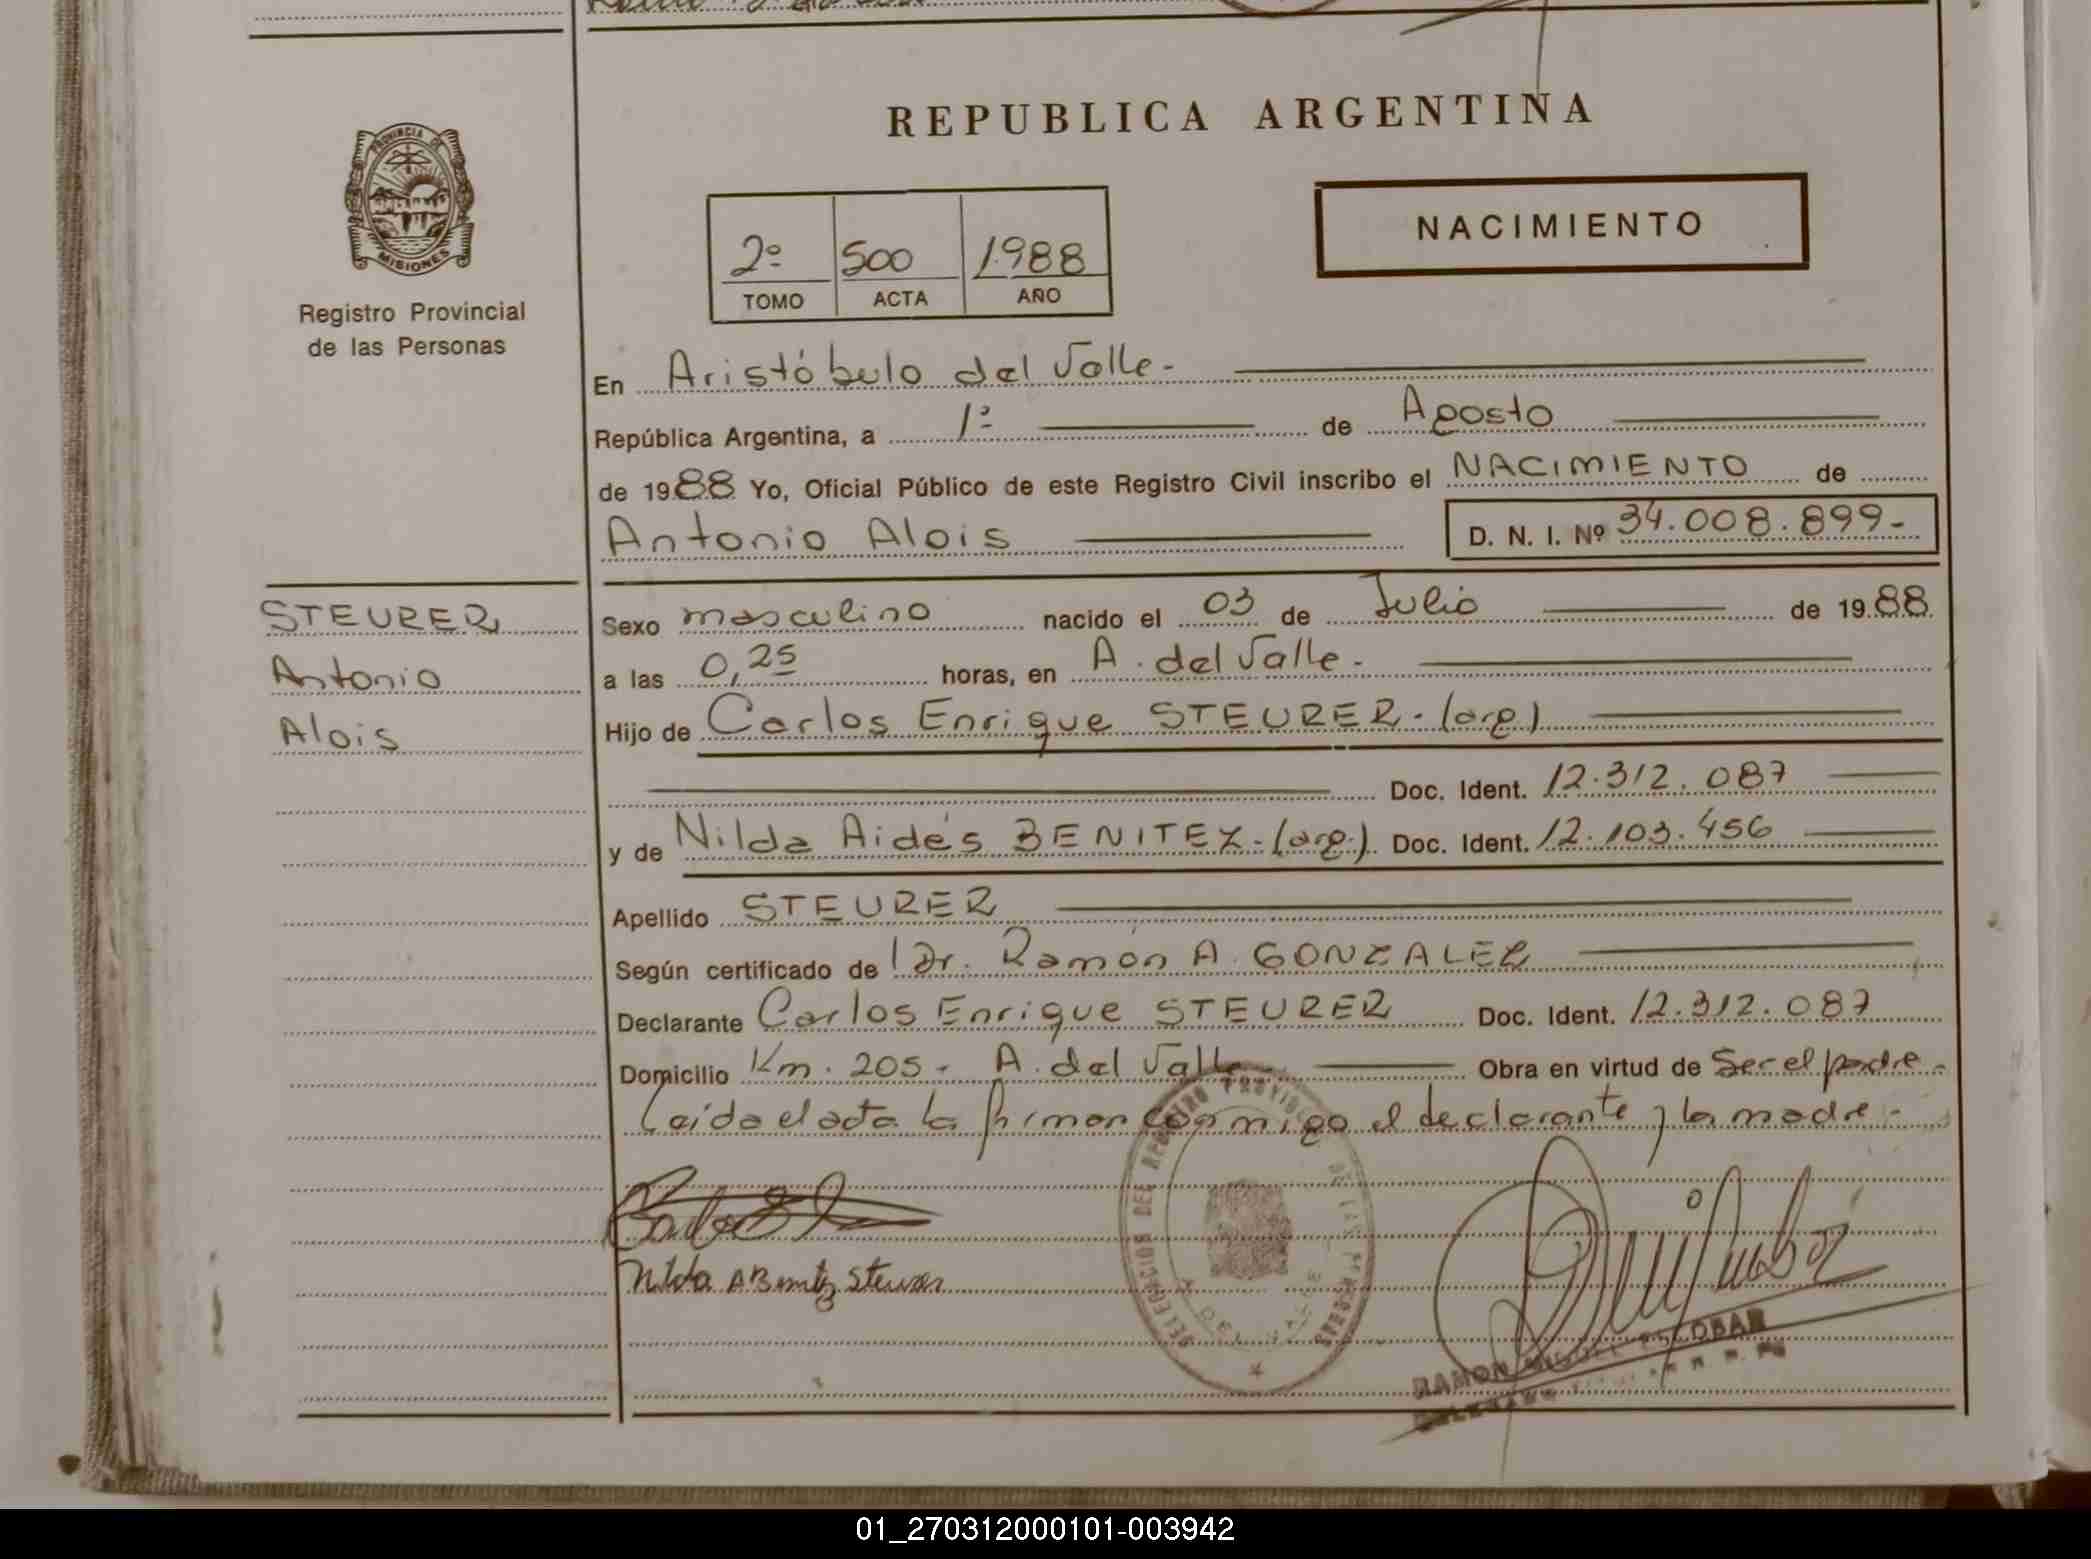 PROVINCIA DE
MISIONES
Registro Provincial
de las Personas
REPUBLICA ARGENTINA
NACIMIENTO
2º 500 1988
TOMO ACTA AÑO
En Aristóbulo del Valle.-
República Argentina, a 1º de Agosto
de 1988 Yo, Oficial Público de este Registro Civil inscribo el NACIMIENTO de
Antonio Alois D. N. I. Nº 34.008.899-
STEURER
Antonio
Alois
Sexo masculino nacido el 03 de Julio de 1988.
a las 0,25 horas, en A. del Valle.-
Hijo de Carlos Enrique STEURER.- (arg)
Doc. Ident. 12.312.087
y de Nilda Aidés BENITEZ.- (arg.) Doc. Ident. 12.103.456
Apellido STEURER
Según certificado de Dr. Ramón A. GONZALEZ
Declarante Carlos Enrique STEURER Doc. Ident. 12.312.087
Domicilio Km. 205- A. del Valle Obra en virtud de Ser el padre.-
Leída el acta la firman conmigo el declarante y la madre.-
Nilda A Benitez Steurer
DELEGACION DEL REGISTRO PROVINCIAL DE LAS PERSONAS
DEL VALLE
RAMON MIGUEL ESCOBAR
01_270312000101-003942